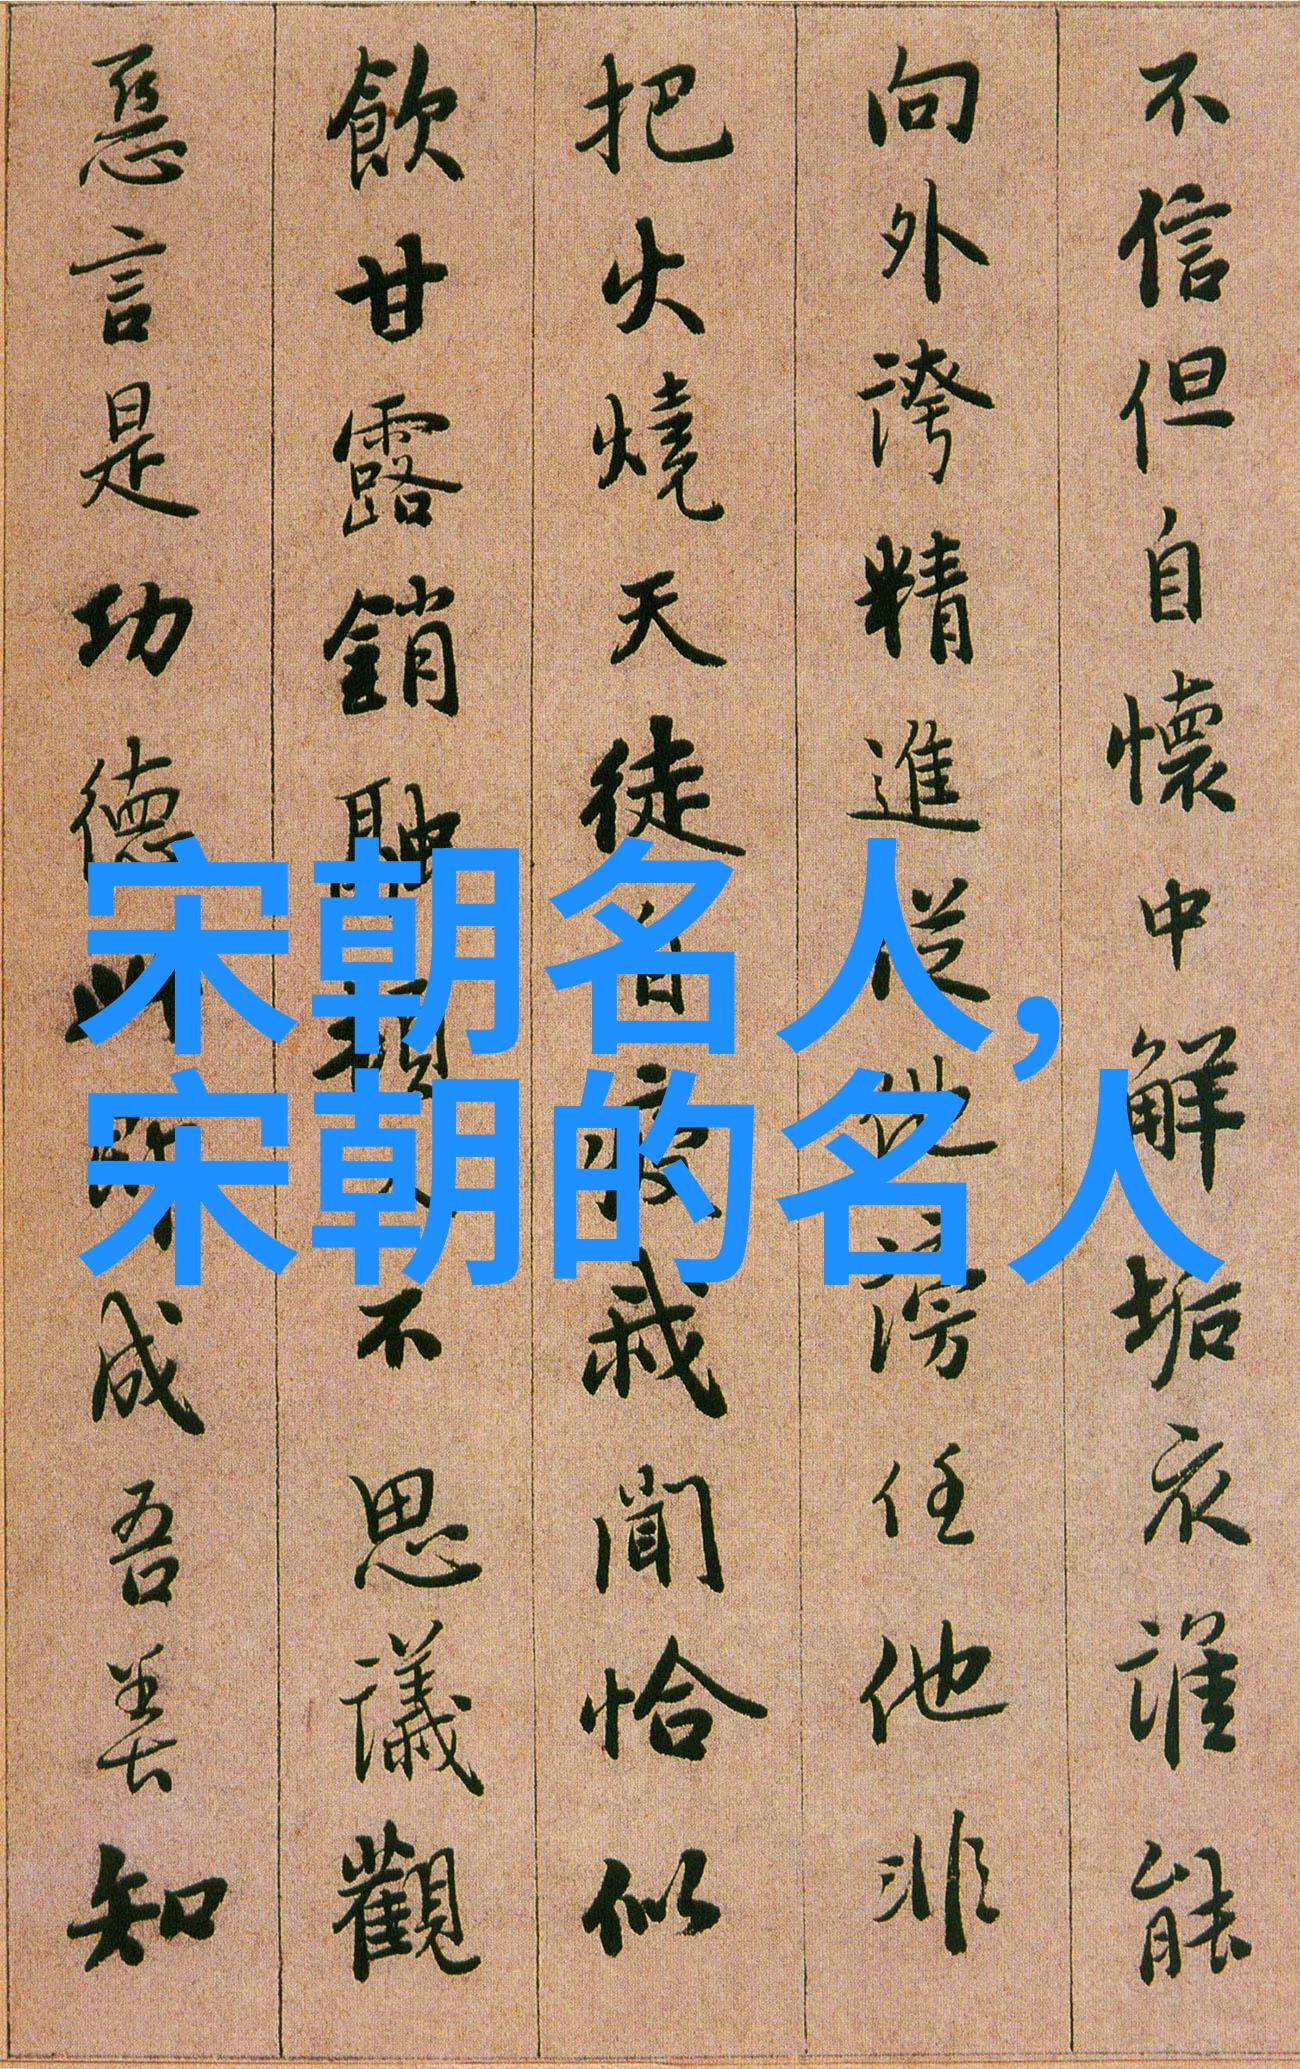 不信但自懷中解垢衣誰能
向外誇精進從他謗任他非
把火燒天徒自疲我聞恰似
飲甘露銷融頓入不思議觀
惡言是功德此成吾善知
宋朝名人,
宋朝的名人